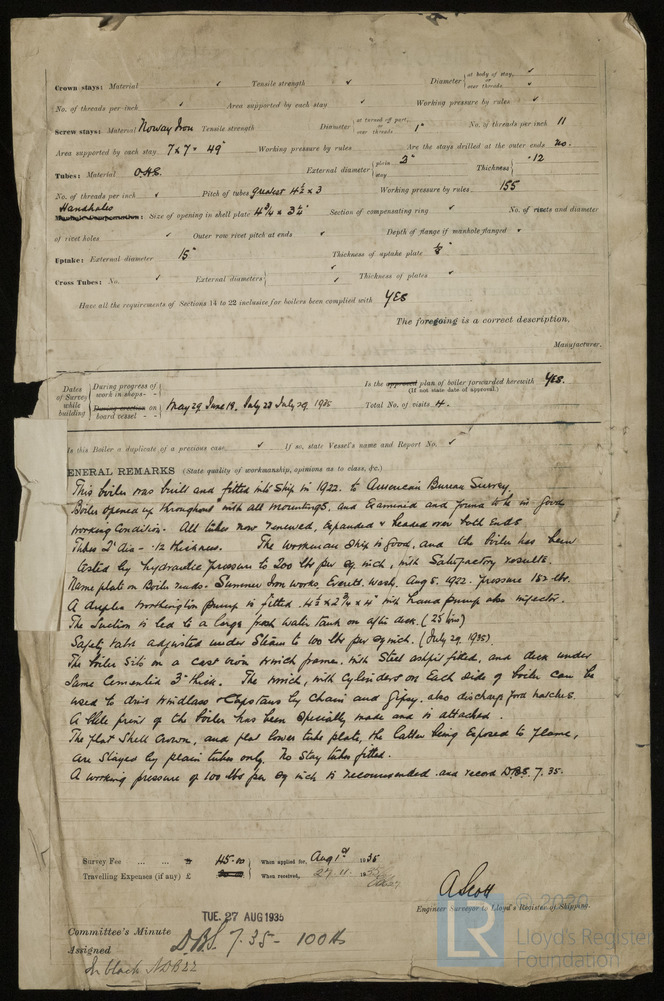 Crown stays: Material ✓ Tensile strength ✓ Diameter { at body of stay, or over threads ✓
No. of threads per inch ✓ Area supported by each stay ✓ Working pressure by rules ✓
Screw stays: Material Norway Iron Tensile strength Diameter { at turned off part, or over threads 1" No. of threads per inch 11
Area supported by each stay 7 x 7 = 49" Working pressure by rules Are the stays drilled at the outer ends no.
Tubes: Material O.H.S. External diameter { plain 2" stay Thickness { .12
No. of threads per inch ✓ Pitch of tubes greatest 4½ x 3 Working pressure by rules 155
Handholes
Size of opening in shell plate 4¾ x 3¼" Section of compensating ring ✓ No. of rivets and diameter
of rivet holes ✓ Outer row rivet pitch at ends ✓ Depth of flange if manhole flanged ✓
Uptake: External diameter 15" Thickness of uptake plate
Cross Tubes: No. ✓ External diameters { ✓ Thickness of plates ✓
Have all the requirements of Sections 14 to 22 inclusive for boilers been complied with YES
The foregoing is a correct description,
Manufacturer.
Dates of Survey while building { During progress of work in shops - - Is the approved plan of boiler forwarded herewith YES.
(If not state date of approval.)
During erection on board vessel - - May 29 June 19. July 23 July 29 1935 Total No. of visits 4.
Is this Boiler a duplicate of a previous case ✓ If so, state Vessel's name and Report No. ✓
ENERAL REMARKS (State quality of workmanship, opinions as to class, &c.)
This boiler was built and fitted into Ship in 1922. to American Bureau Survey
Boiler opened up throughout with all mountings, and Examined and found to be in good
working Condition. All tubes now renewed, expanded & beaded over both Ends
Tubes 2" dia - .12 thickness. The workmanship is good, and the boiler has been
tested by hydraulic pressure to 200 lbs per sq inch, with Satisfactory results.
Name plate on Boiler reads. Sumner Iron works, Everett. Wash. Aug 5. 1922. pressure 152 lbs.
A duplex Worthington pump is fitted. 4½ x 2¾ x 4" with hand pump also injector.
The Suction is led to a large fresh water tank on after deck. (25 tons)
Safety Valve adjusted under Steam to 100 lbs per sq inch. (July 29. 1935).
The boiler Sits on a cast iron winch frame. with Steel ashpit fitted, and deck under
Same Cemented 3" thick. The winch, with Cylinders on Each side of boiler can be
used to drive Windlass Capstans by Chain and Gipsy. also discharge from hatches.
A blue print of the boiler has been specially made and is attached.
The flat Shell Crown, and flat lower tube plate, the latter being Exposed to flame,
are Stayed by plain tubes only, No Stay tubes fitted.
A working pressure of 100 lbs per sq inch is recommended and record D.B.S. 7.35.
Survey Fee ... ... 45.00 When applied for, Aug 1st 1935
Travelling Expenses (if any) £ When received, 27.11. 19
A Scott
Engineer Surveyor to Lloyd's Register of Shipping.
TUE. 27 AUG 1935
Committee's Minute
Assigned D.B.S. 7.35 - 100 lb
In black NDB 22
© 2020
LR Lloyd's Register
Foundation